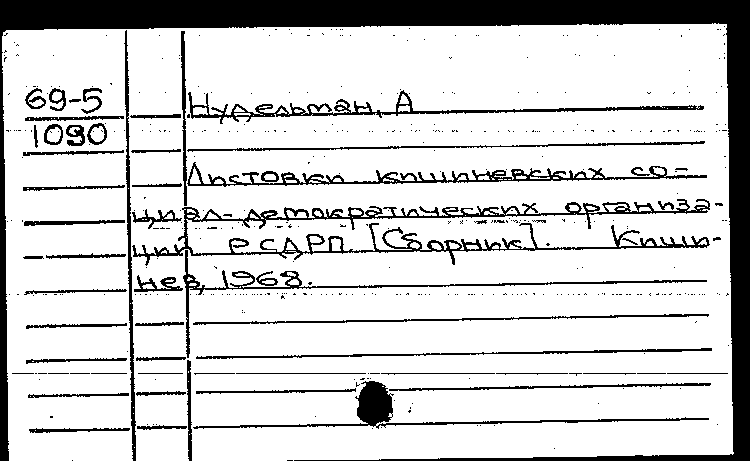 69-5 Нудельман, А
1090
Листовки кишиневских со-
циал-демократических организа-
ций РСДРП. [Сборник]. Киши-
нев, 1968.